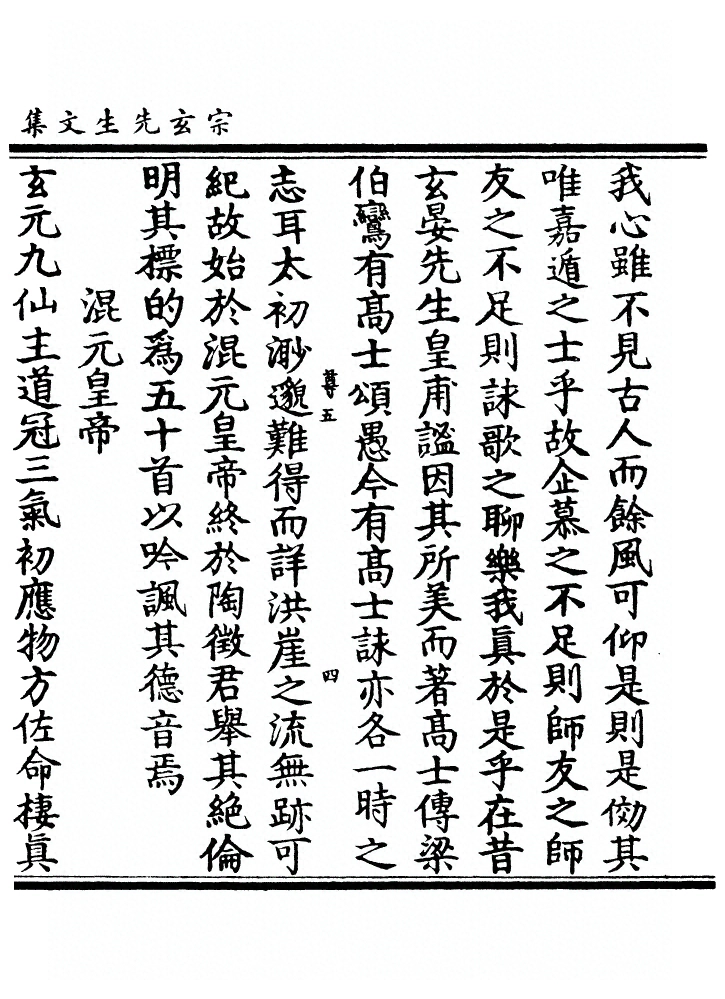 宗玄先生文集
我心雖不見古人而餘風可仰是則是傚其
唯嘉遁之士乎故企慕之不足則師友之師
友之不足則詠歌之聊樂我眞於是乎在昔
玄晏先生皇甫謐因其所美而著高士傳梁
伯鸞有高士頌愚今有高士詠亦各一時之
尊五
四
志耳太初渺邈難得而詳洪崖之流無跡可
紀故始於混元皇帝終於陶徵君舉其絕倫
明其標的爲五十首以吟諷其德音焉
混元皇帝
玄元九仙主道冠三氣初應物方佐命棲眞